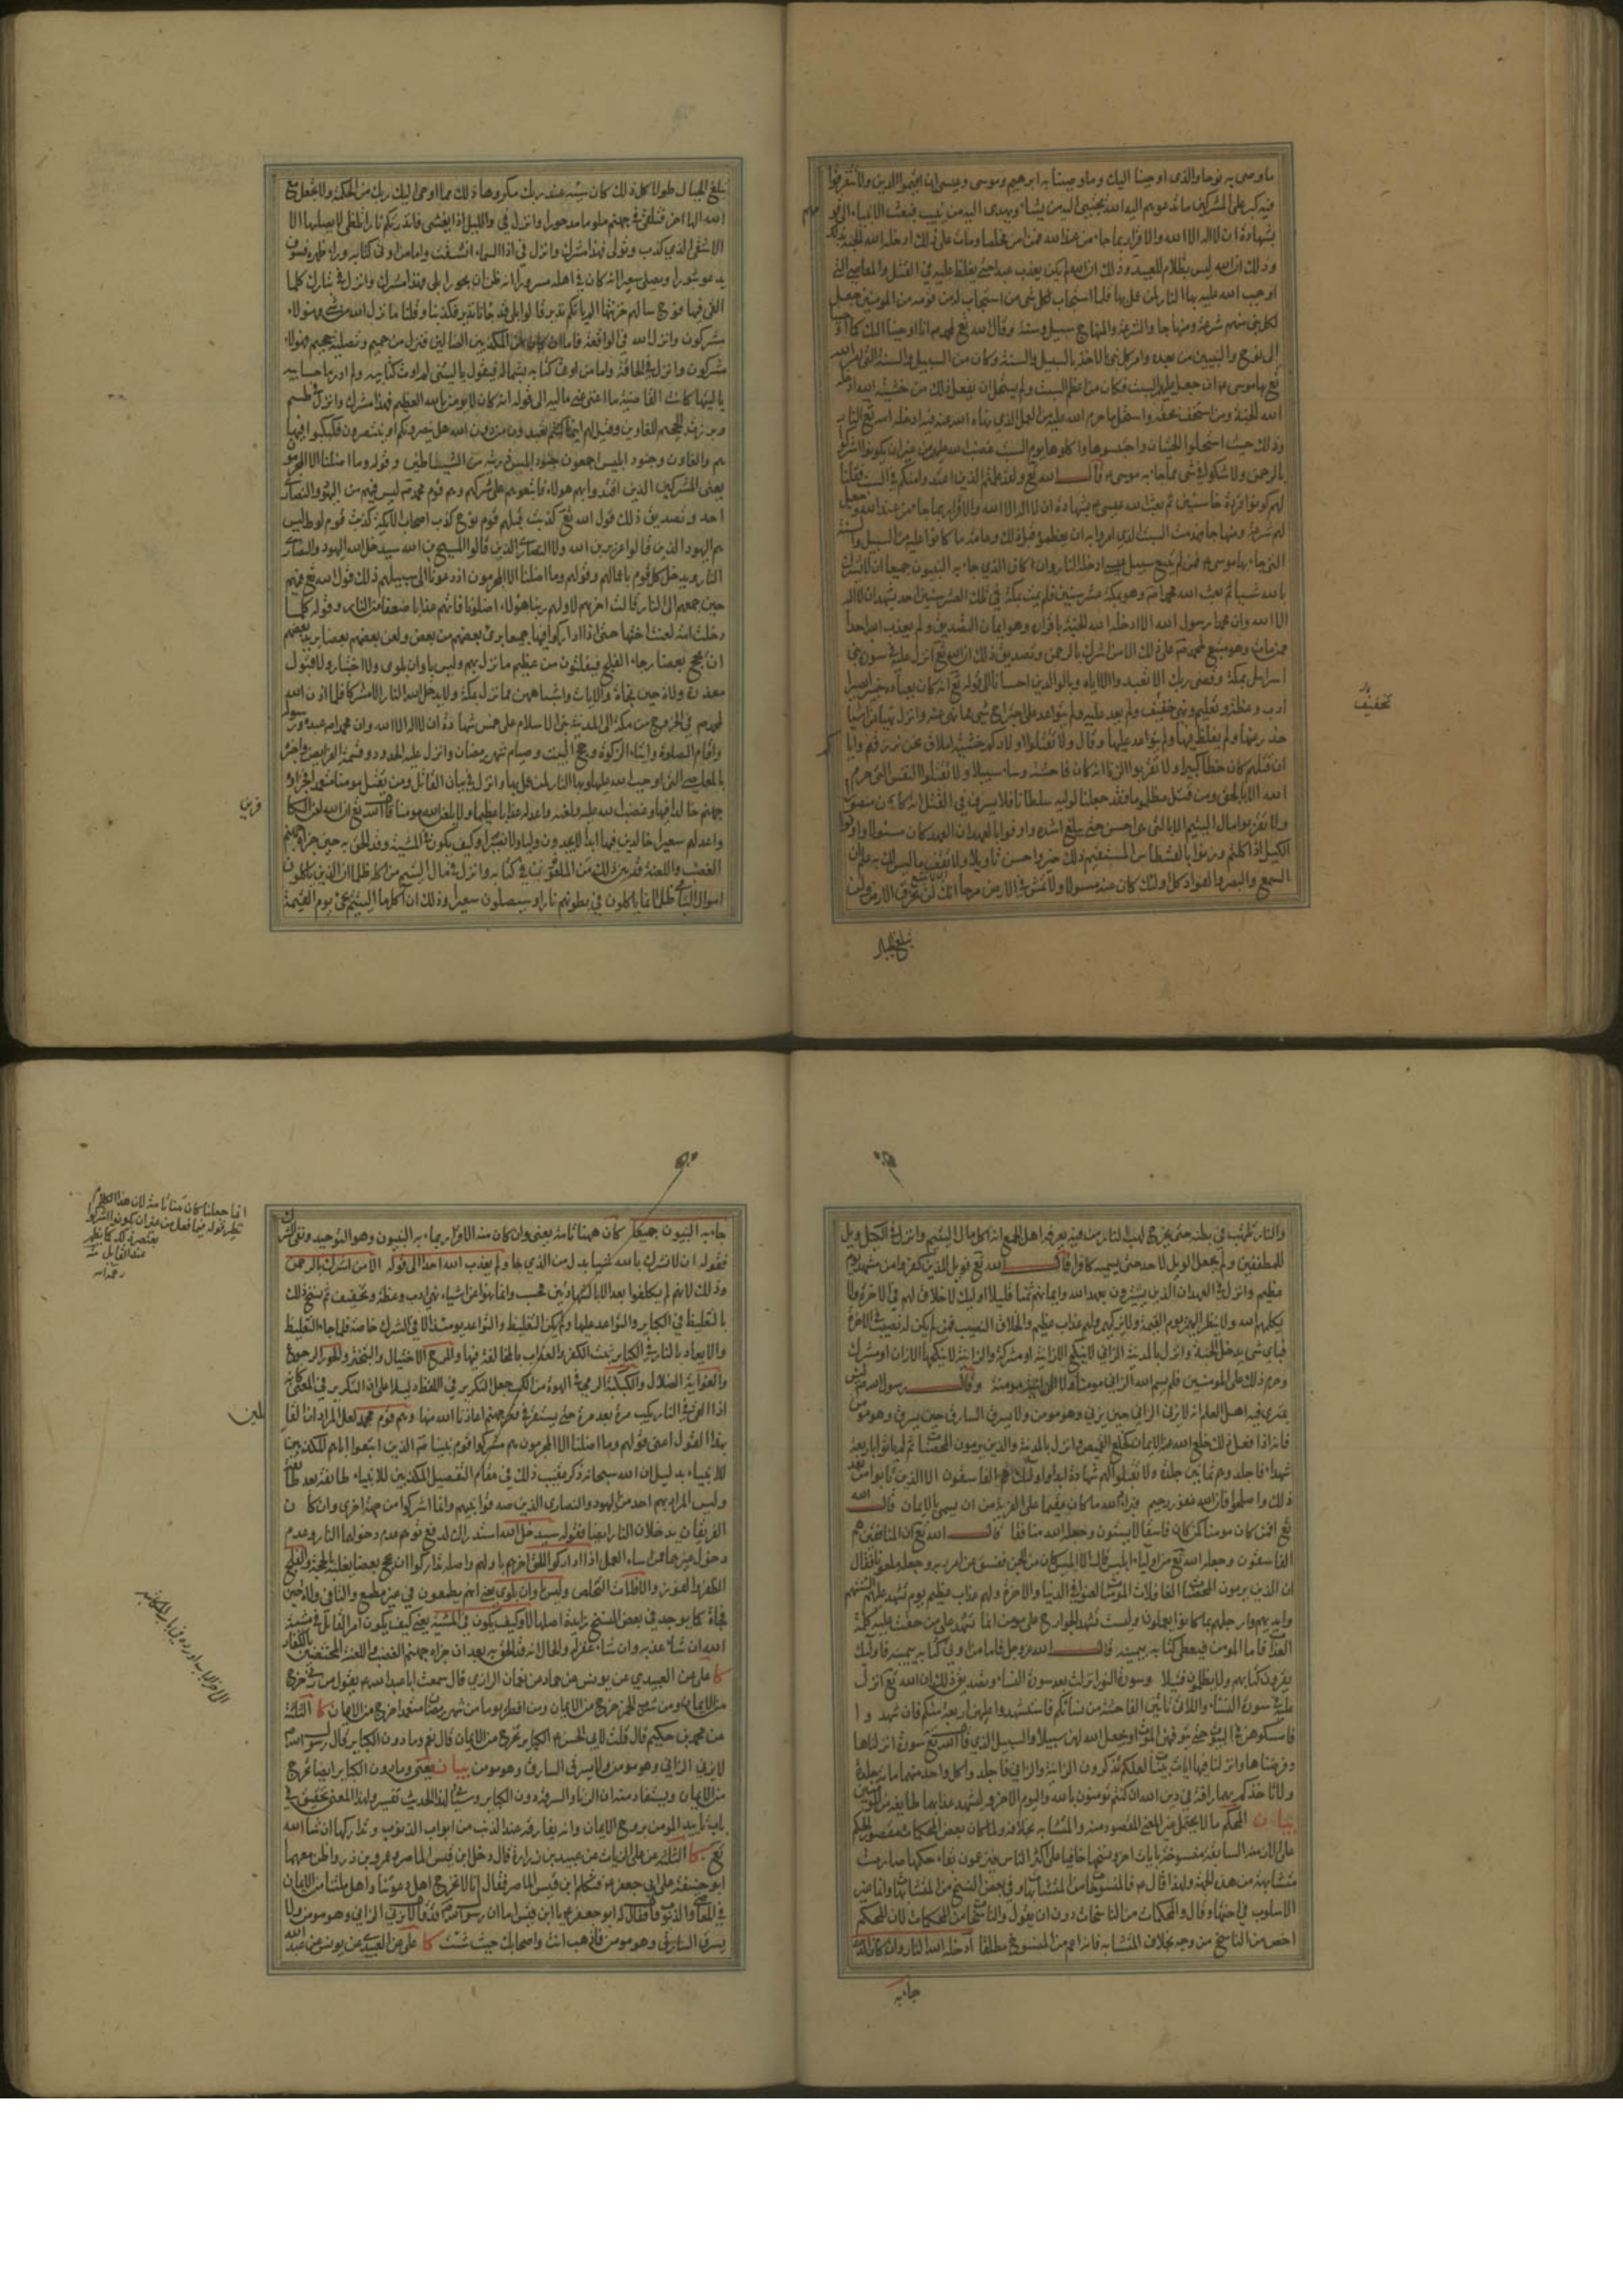 ما وصى به نوحا والذي اوحينا اليك وما وصينا به ابرهيم وموسى وعيسى ان اقيموا الدين ولا تتفرقوا
فيه كبر على المشركين ما تدعوهم اليه الله يجتبي اليه من يشاء ويهدى اليه من ينيب فبعث الانبياء الى قو
بشهادة ان لا اله الا الله والاقرار بما جاء من عند الله فمن امن مخلصا ومات على ذلك ادخله الله الجنة بذلك
وذلك ان الله ليس بظلام للعبيد وذلك ان الله لم يكن يعذب عبدا حتى يغلظ عليه في القتل والمعاصي التي
اوجب الله عليه بها النار لمن عمل بها فلما استجاب لكل نبي من استجاب له من قومه من المؤمنين جعل
لكل نبي منهم شرعة ومنهاجا والشرعة والمنهاج سبيل وسنة وقال الله تع لمحمد ص انا اوحينا اليك كما اوحينا
الى نوح والنبيين من بعده وامر كل نبي بالاخذ بالسبيل والسنة وكان من السبيل والسنة التي امر الله
تع بها موسى ع ان جعل عليهم السبت فكان من اعظم السبت ولم يستحل ان يفعل ذلك من خشية الله ادخله
الله الجنة ومن استخف بحقه واستحل ما حرم الله عليه من العمل الذي نهاه الله عنه فيه ادخله الله تع النار
وذلك حيث استحلوا الحيتان واحتبسوها واكلوها يوم السبت غضب الله عليهم من غير ان يكونوا اشركوا
بالرحمن ولا شكوا في شئ مما جاء به موسى ع قال الله تع ولقد علمتم الذين اعتدوا منكم في السبت فقلنا
لهم كونوا قردة خاسئين ثم بعث الله عيسى ع بشهادة ان لا اله الا الله والاقرار بما جاء من عند الله وجعل
لهم شرعة ومنهاجا فهدمت السبت الذي امروا به ان يعظموه قبل ذلك وعامة ما كانوا عليه من السبيل والسنة
التي جاء بها موسى ع فمن لم يتبع سبيل عيسى ادخله الله النار وان كان الذي جاء به النبيون جميعا ان لا يشرك
بالله شيئا ثم بعث الله محمدا ص وهو بمكة عشر سنين فلم يمت بمكة في تلك العشر سنين احد يشهد ان لا اله
الا الله وان محمدا رسول الله الا ادخله الله الجنة باقراره وهو ايمان التصديق ولم يعذب الله احدا
ممن مات وهو متبع لمحمد ص على ذلك الا من اشرك بالرحمن وتصديق ذلك ان الله تع انزل عليه في سورة بني
اسرائيل بمكة وقضى ربك الا تعبدوا الا اياه وبالوالدين احسانا الى قوله تع انه كان بعباده خبيرا بصيرا
ادب وعظة وتعليم ونهى خفيف ولم يعد عليه ولم يتواعد على اجتراح شئ مما نهى عنه وانزل نهيا عن اشيا
حذر عنها ولم يغلظ فيها ولم يتواعد عليها وقال ولا تقتلوا اولادكم خشية املاق نحن نرزقهم واياكم
ان قتلهم كان خطأ كبيرا ولا تقربوا الزنا انه كان فاحشة وساء سبيلا ولا تقتلوا النفس التي حرم
الله الا بالحق ومن قتل مظلوما فقد جعلنا لوليه سلطانا فلا يسرف في القتل انه كان منصورا
ولا تقربوا مال اليتيم الا بالتي هي احسن حتى يبلغ اشده واوفوا بالعهد ان العهد كان مسئولا واوفوا
الكيل اذا كلتم وزنوا بالقسطاس المستقيم ذلك خير واحسن تاويلا ولا تقف ما ليس لك به علم ان
السمع والبصر والفواد كل اولئك كان عنه مسئولا ولا تمش في الارض مرحا انك لن تخرق الارض ولن
تبلغ الجبال
تخفيف
تبلغ الجبال طولا كل ذلك كان سيئه عند ربك مكروها ذلك مما اوحى اليك ربك من الحكمة ولا تجعل مع
الله الها اخر فتلقى في جهنم ملوما مدحورا وانزل في والليل اذا يغشى فانذرتكم نارا تلظى لا يصليها الا
الاشقى الذي كذب وتولى فهذا مشرك وانزل في اذا السماء انشقت واما من اوتى كتابه وراء ظهره فسوف
يدعو ثبورا ويصلى سعيرا انه كان في اهله مسرورا انه ظن ان لن يحور بلى فهذا مشرك وانزل في تبارك كلما
القى فيها فوج سالهم خزنتها الم ياتكم نذير قالوا بلى قد جاءنا نذير فكذبنا وقلنا ما نزل الله من شئ فهولاء
مشركون وانزل الله في الواقعة فاما ان كان من المكذبين الضالين فنزل من حميم وتصلية جحيم فهولاء
مشركون وانزل في الحاقة واما من اوتى كتابه بشماله فيقول يا ليتني لم اوت كتابيه ولم ادر ما حسابيه
يا ليتها كانت القاضية ما اغنى عني ماليه الى قوله انه كان لا يؤمن بالله العظيم فهذا مشرك وانزل في طسم
وبرزت الجحيم للغاوين وقيل لهم اينما كنتم تعبدون من دون الله هل ينصرونكم او ينتصرون فكبكبوا فيها
هم والغاون وجنود ابليس اجمعون جنود ابليس ذريته من الشياطين وقوله وما اضلنا الا المجرمون
يعنى المشركين الذين اقتدوا بهم هولاء فاتبعوهم على شركهم وهم قوم محمد ص ليس فيهم من اليهود والنصارى
احد وتصديق ذلك قول الله تع كذبت قبلهم قوم نوح كذب اصحاب الايكة كذبت قوم لوط ليس
هم اليهود الذين قالوا عزير بن الله ولا النصارى الذين قالوا المسيح بن الله سيدخل الله اليهود والنصارى
النار ويدخل كل قوم باعمالهم وقولهم وما اضلنا الا المجرمون اذ دعونا الى سبيلهم ذلك قول الله تع فيهم
حين جمعهم الى النار قالت اخريهم لاوليهم ربنا هولاء اضلونا فاتهم عذابا ضعفا من النار وقوله كلما
دخلت امة لعنت اختها حتى اذا اداركوا فيها جميعا برئ بعضهم من بعض ولعن بعضهم بعضا يريد بعضهم
ان يحج بعضا رجاء الفلج فيفلتون من عظيم ما نزل بهم وليس باوان بلوى ولا اختبار ولا قبول
معذرة ولات حين نجاة والايات واشباههن مما نزل بمكة ولا يدخل الله النار الا مشركا فلما اذن الله
لمحمد ص في الخروج من مكة الى المدينة بنى الاسلام على خمس شهادة ان لا اله الا الله وان محمدا ص عبده ورسوله
واقام الصلوة وايتاء الزكوة وحج البيت وصيام شهر رمضان وانزل عليه الحدود وقسمة الفرايض واخبره
بالمعاصي التي اوجب الله عليها وبها النار لمن عمل بها وانزل في بيان القاتل ومن يقتل مومنا متعمدا فجزاؤه
جهنم خالدا فيها وغضب الله عليه ولعنه واعد له عذابا عظيما ولا يلعن الله مومنا قال الله تع ان الله لعن الكا
فرين
واعد لهم سعيرا خالدين فيها ابدا لا يجدون وليا ولا نصيرا وكيف يكون في المشية وقد الحق به حين جزاه جهنم
الغضب واللعنة قد بين ذلك من الملعونين في كتابه وانزل في مال اليتيم من اكله ظلما ان الذين ياكلون
اموال اليتامى ظلما انما ياكلون في بطونهم نارا وسيصلون سعيرا وذلك ان آكل مال اليتيم يجئ يوم القيمة
والنار تلتهب في بطنه حتى يخرج لهب النار من فيه يعرفه اهل الجمع انه آكل مال اليتيم وانزل في الكيل ويل
للمطففين ولم يجعل الويل لاحد حتى يسميه كافرا قال الله تع فويل للذين كفروا من مشهد يوم
عظيم وانزل في العهد ان الذين يشترون بعهد الله وايمانهم ثمنا قليلا اوليك لا خلاق لهم في الاخرة ولا
يكلمهم الله ولا ينظر اليهم يوم القيمة ولا يزكيهم ولهم عذاب عظيم والخلاق النصيب فمن لم يكن له نصيب في الاخرة
فباي شئ يدخل الجنة وانزل بالمدينة الزاني لا ينكح الا زانية او مشركة والزانية لا ينكحها الا زان او مشرك
وحرم ذلك على المومنين فلم يسم الله الزاني مومنا ولا الزانية مومنة وقال رسول الله ص ليس
يمترى فيه اهل العلم انه لا يزنى الزاني حين يزني وهو مومن ولا يسرق السارق حين يسرق وهو مومن
فانه اذا فعل ذلك خلع الله عنه الايمان كخلع القميص وانزل بالمدينة والذين يرمون المحصنات ثم لم ياتوا باربعة
شهداء فاجلدوهم ثمانين جلدة ولا تقبلوا لهم شهادة ابدا واولئك هم الفاسقون الا الذين تابوا من بعد
ذلك واصلحوا فان الله غفور رحيم فبراه الله ما كان مقيما على الفرية من ان يسمى بالايمان قال الله
تع افمن كان مومنا كمن كان فاسقا لا يستوون وجعله الله منافقا قال الله تع ان المنافقين هم
الفاسقون وجعله الله تع من اولياء ابليس قال الا ابليس كان من الجن ففسق عن امر ربه وجعله ملعونا فقال
ان الذين يرمون المحصنات الغافلات المومنات لعنوا في الدنيا والاخرة ولهم عذاب عظيم يوم تشهد عليهم السنتهم
وايديهم وارجلهم بما كانوا يعملون وليست تشهد الجوارح على مومن انما تشهد على من حقت عليه كلمة
العذاب فاما المومن فيعطى كتابه بيمينه قال الله عز وجل فاما من اوتى كتابه بيمينه فاولئك
يقرون كتابهم ولا يظلمون فتيلا وسورة النور انزلت بعد سورة النساء وتصديق ذلك ان الله تع انزل
عليه في سورة النساء واللاتي ياتين الفاحشة من نسائكم فاستشهدوا عليهن اربعة منكم فان شهدوا
فامسكوهن في البيوت حتى يتوفهن الموت او يجعل الله لهن سبيلا والسبيل الذي قال الله تع سورة انزلناها
وفرضناها وانزلنا فيها ايات بينات لعلكم تذكرون الزانية والزاني فاجلدوا كل واحد منهما مائة جلدة
ولا تاخذكم بهما رافة في دين الله ان كنتم تومنون بالله واليوم الاخر وليشهد عذابهما طايفة من المومنين
بيان المحكم ما لا يحتمل غير المعنى المقصود منه والمتشابه بخلافه ولما كان بعض المحكمات مقصور الحكم
على الازمنة السابقة منسوخة بايات اخر ونسخها خافيا على اكثر الناس فيزعمون بقاء حكمها صارت
متشابهة من هذه الجهة ولهذا قال ع فالمنسوخات من المتشابهات وفي بعض النسخ من المشتبهات وانما غير
الاسلوب في اختها وقال والمحكمات من الناسخات دون ان يقول والناسخات من المحكمات لان المحكم
اخص من الناسخ من وجه بخلاف المتشابه فانه اعم من المنسوخ مطلقا ادخله الله النار وان كان الذي
جاء به
جاء به النبيون جميعا كان ههنا تامة يعنى وان كان منه الاقرار بما جاء به النبيون وهو التوحيد ونفى الشرك
فقوله ان لا تشرك بالله شيئا بدل من الذي جاء ولم يعذب الله احدا الى قوله الا من اشرك بالرحمن
وذلك لانهم لم يكلفوا بعد الا بالشهادتين فحسب وانما نهوا عن اشياء نهى ادب وعظة وتخفيف ثم نسخ ذلك
بالتغليظ في الكباير والتواعد عليها ولم يكن التغليظ والتواعد يومئذ الا في الشرك خاصة فلما جاء التغليظ
والايعاد بالنار في الكباير ثبت الكفر والعذاب بالمخالفة فيها والمرح الاختيال والتبختر والحور الرجوع
والغواية الضلال والكبكبة الرمي في الهوة من الكب جعل التكرير في اللفظ دليلا على ان التكرير في المعنى كانه
اذا القى في النار يكب مرة بعد مرة حتى يستقر في قعر جهنم اعاذنا الله منها وهم قوم محمد لعل المراد ان القا
ئلين
بهذا القول اعنى قولهم وما اضلنا الا المجرمون هم مشركوا قوم نبينا ص الذين اتبعوا اباءهم المكذبين
للانبياء بدليل ان الله سبحانه ذكر عقيب ذلك في مقام التفصيل المكذبين للانبياء طائفة بعد طائفة
وليس المراد بهم احد من اليهود والنصارى الذين صدقوا نبيهم وانما اشركوا من جهة اخرى وان كان
الفريقان يدخلان النار ايضا فقوله سيدخل الله استدراك لدفع توهم عدم دخولهما النار وعدم
دخول غيرهما ممن ساء العمل اذا اداركوا اللحق اخرهم باولهم واصله تداركوا ان يحج بعضا يغلبه بالحجة والفلج
الظفر والفوز والافلات التخلص وليس باوان بلوى يعنى انهم يطمعون في غير مطمع والتا في ولات حين
نجاة كما يوجد في بعض النسخ زايدة اصلها لا وكيف يكون في المشية يعنى كيف يكون امر القاتل في مشية
الله ان شاء عذبه وان شاء غفر له والحال انه قد الحق به بعد ان جزاه جهنم الغضب واللعنة المختصين بالكفار
كا علي عن العبيدي عن يونس عن حماد عن نعمان الرازي قال سمعت ابا عبد الله ع يقول من زنى خرج
من الايمان ومن شرب الخمر خرج من الايمان ومن افطر يوما من شهر رمضان متعمدا خرج من الايمان كا الثلثة
عن محمد بن حكيم قال قلت لابي الحسن ع الكباير تخرج من الايمان قال نعم وما دون الكباير قال رسول الله ص
لا يزني الزاني وهو مومن ولا يسرق السارق وهو مومن بيان يعنى وما دون الكباير ايضا تخرج
من الايمان ويستفاد منه ان الزنا والسرقة دون الكباير وسياتي لهذا الحديث تفسير ولهذا المعنى تحقيق في
باب تاييد المومن بروح الايمان وانه يفارقه عند الذنب من ابواب الذنوب وتداركها ان شاء الله
تع كا الثلثة عن علي الزيات عن عبيد بن زرارة قال دخل ابن قيس الماصر وعمرو بن ذر واظن معهما
ابو حنيفة على ابي جعفر ع فتكلم ابن قيس الماصر فقال انا لا نخرج اهل دعوتنا واهل ملتنا من الايمان
في المعاصي والذنوب فقال له ابو جعفر ع يا ابن قيس اما ان رسول الله ص فقد قال لا يزني الزاني وهو مومن ولا
يسرق السارق وهو مومن فاذهب انت واصحابك حيث شئت كا علي عن العبيدي عن يونس عن عبد الله
انما جعلنا كان هنا تامة لان هذا الكلام
نظير قوله فيما قبل من غير ان يكونوا اشركوا